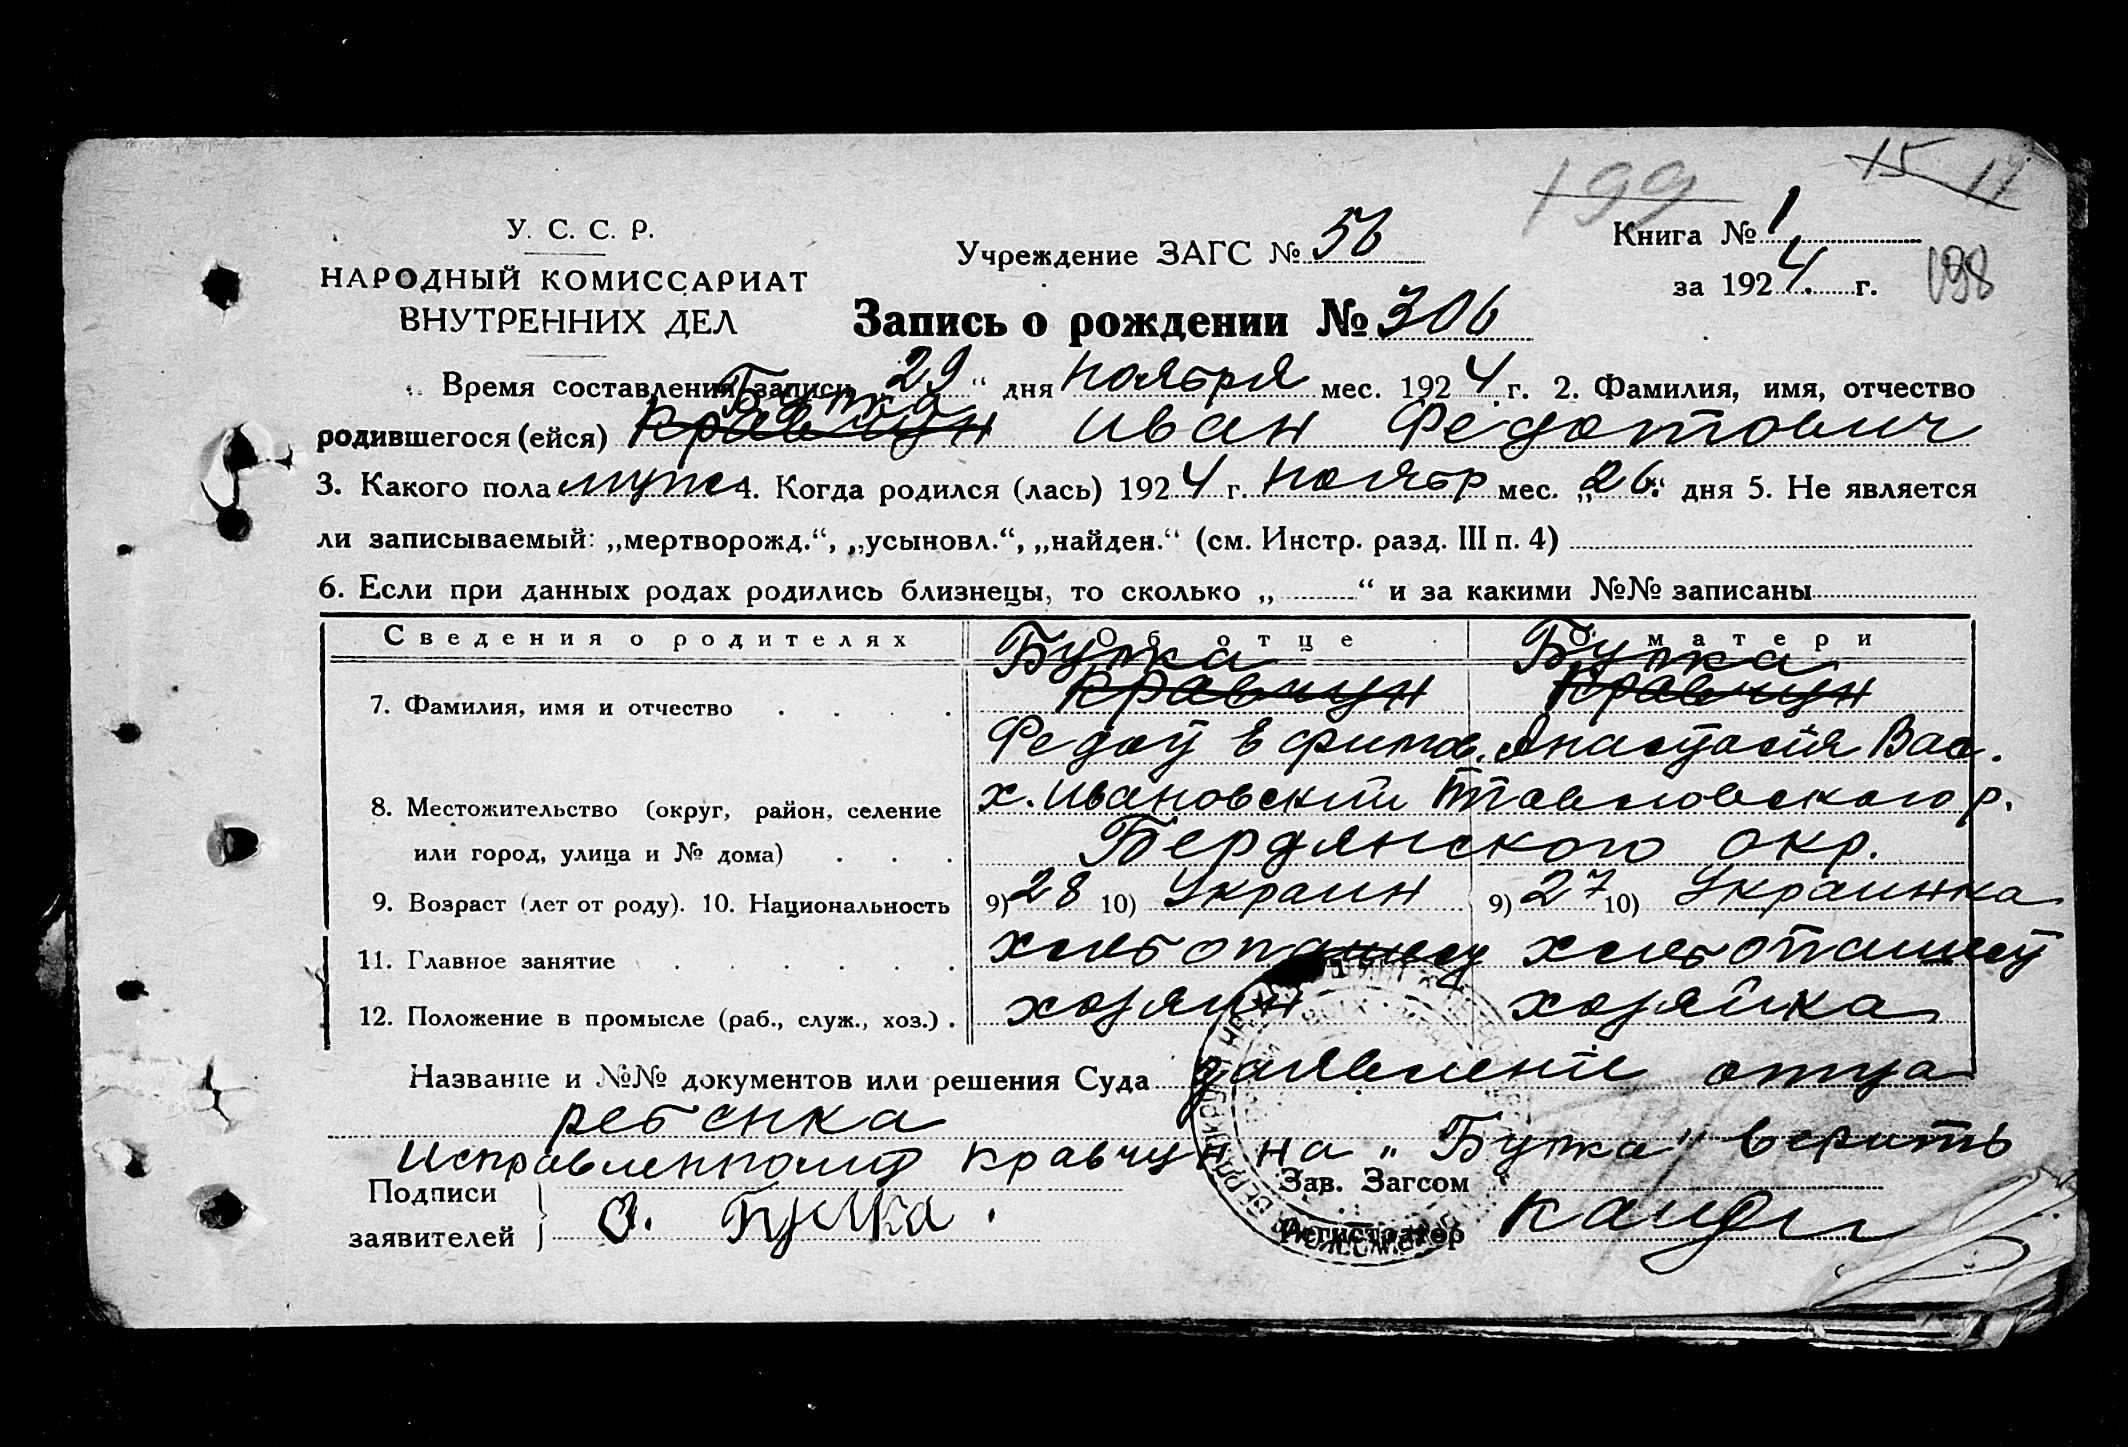 15 17
199
У. С. С. Р.
НАРОДНЫЙ КОМИССАРИАТ
ВНУТРЕННИХ ДЕЛ
Учреждение ЗАГС № 56
Книга № 1
за 1924 г. 198
Запись о рождении № 306
Время составления записи 29 “ дня ноября мес. 1924 г. 2. Фамилия, имя, отчество
Бутка
родившегося (ейся) Кравчун Иван Федотович
3. Какого пола муж 4. Когда родился (лась) 1924 г. ноябр мес. „26“ дня 5. Не является
ли записываемый: „мертворожд.“, „усыновл.“, „найден.“ (см. Инстр. разд. III п. 4)
6. Если при данных родах родились близнецы, то сколько „ “ и за какими №№ записаны
Сведения о родителях Об отце О матери
Бутка Бутка
7. Фамилия, имя и отчество Кравчун Кравчун
Федот Ефимов. Анастасия Вас.
8. Местожительство (округ, район, селение х. Ивановский р.
или город, улица и № дома) Бердянского окр.
9. Возраст (лет от роду). 10. Национальность 9) 28 10) Украин 9) 27 10) Украинка
11. Главное занятие хлебопашец хлебопашец
12. Положение в промысле (раб., служ., хоз.) хозяин хозяйка
Название и №№ документов или решения Суда заявление отца
ребенка
Исправленному Кравчун на „Бутка“ верить
Подписи
заявителей Бутка.
Зав. Загсом
Регистратор